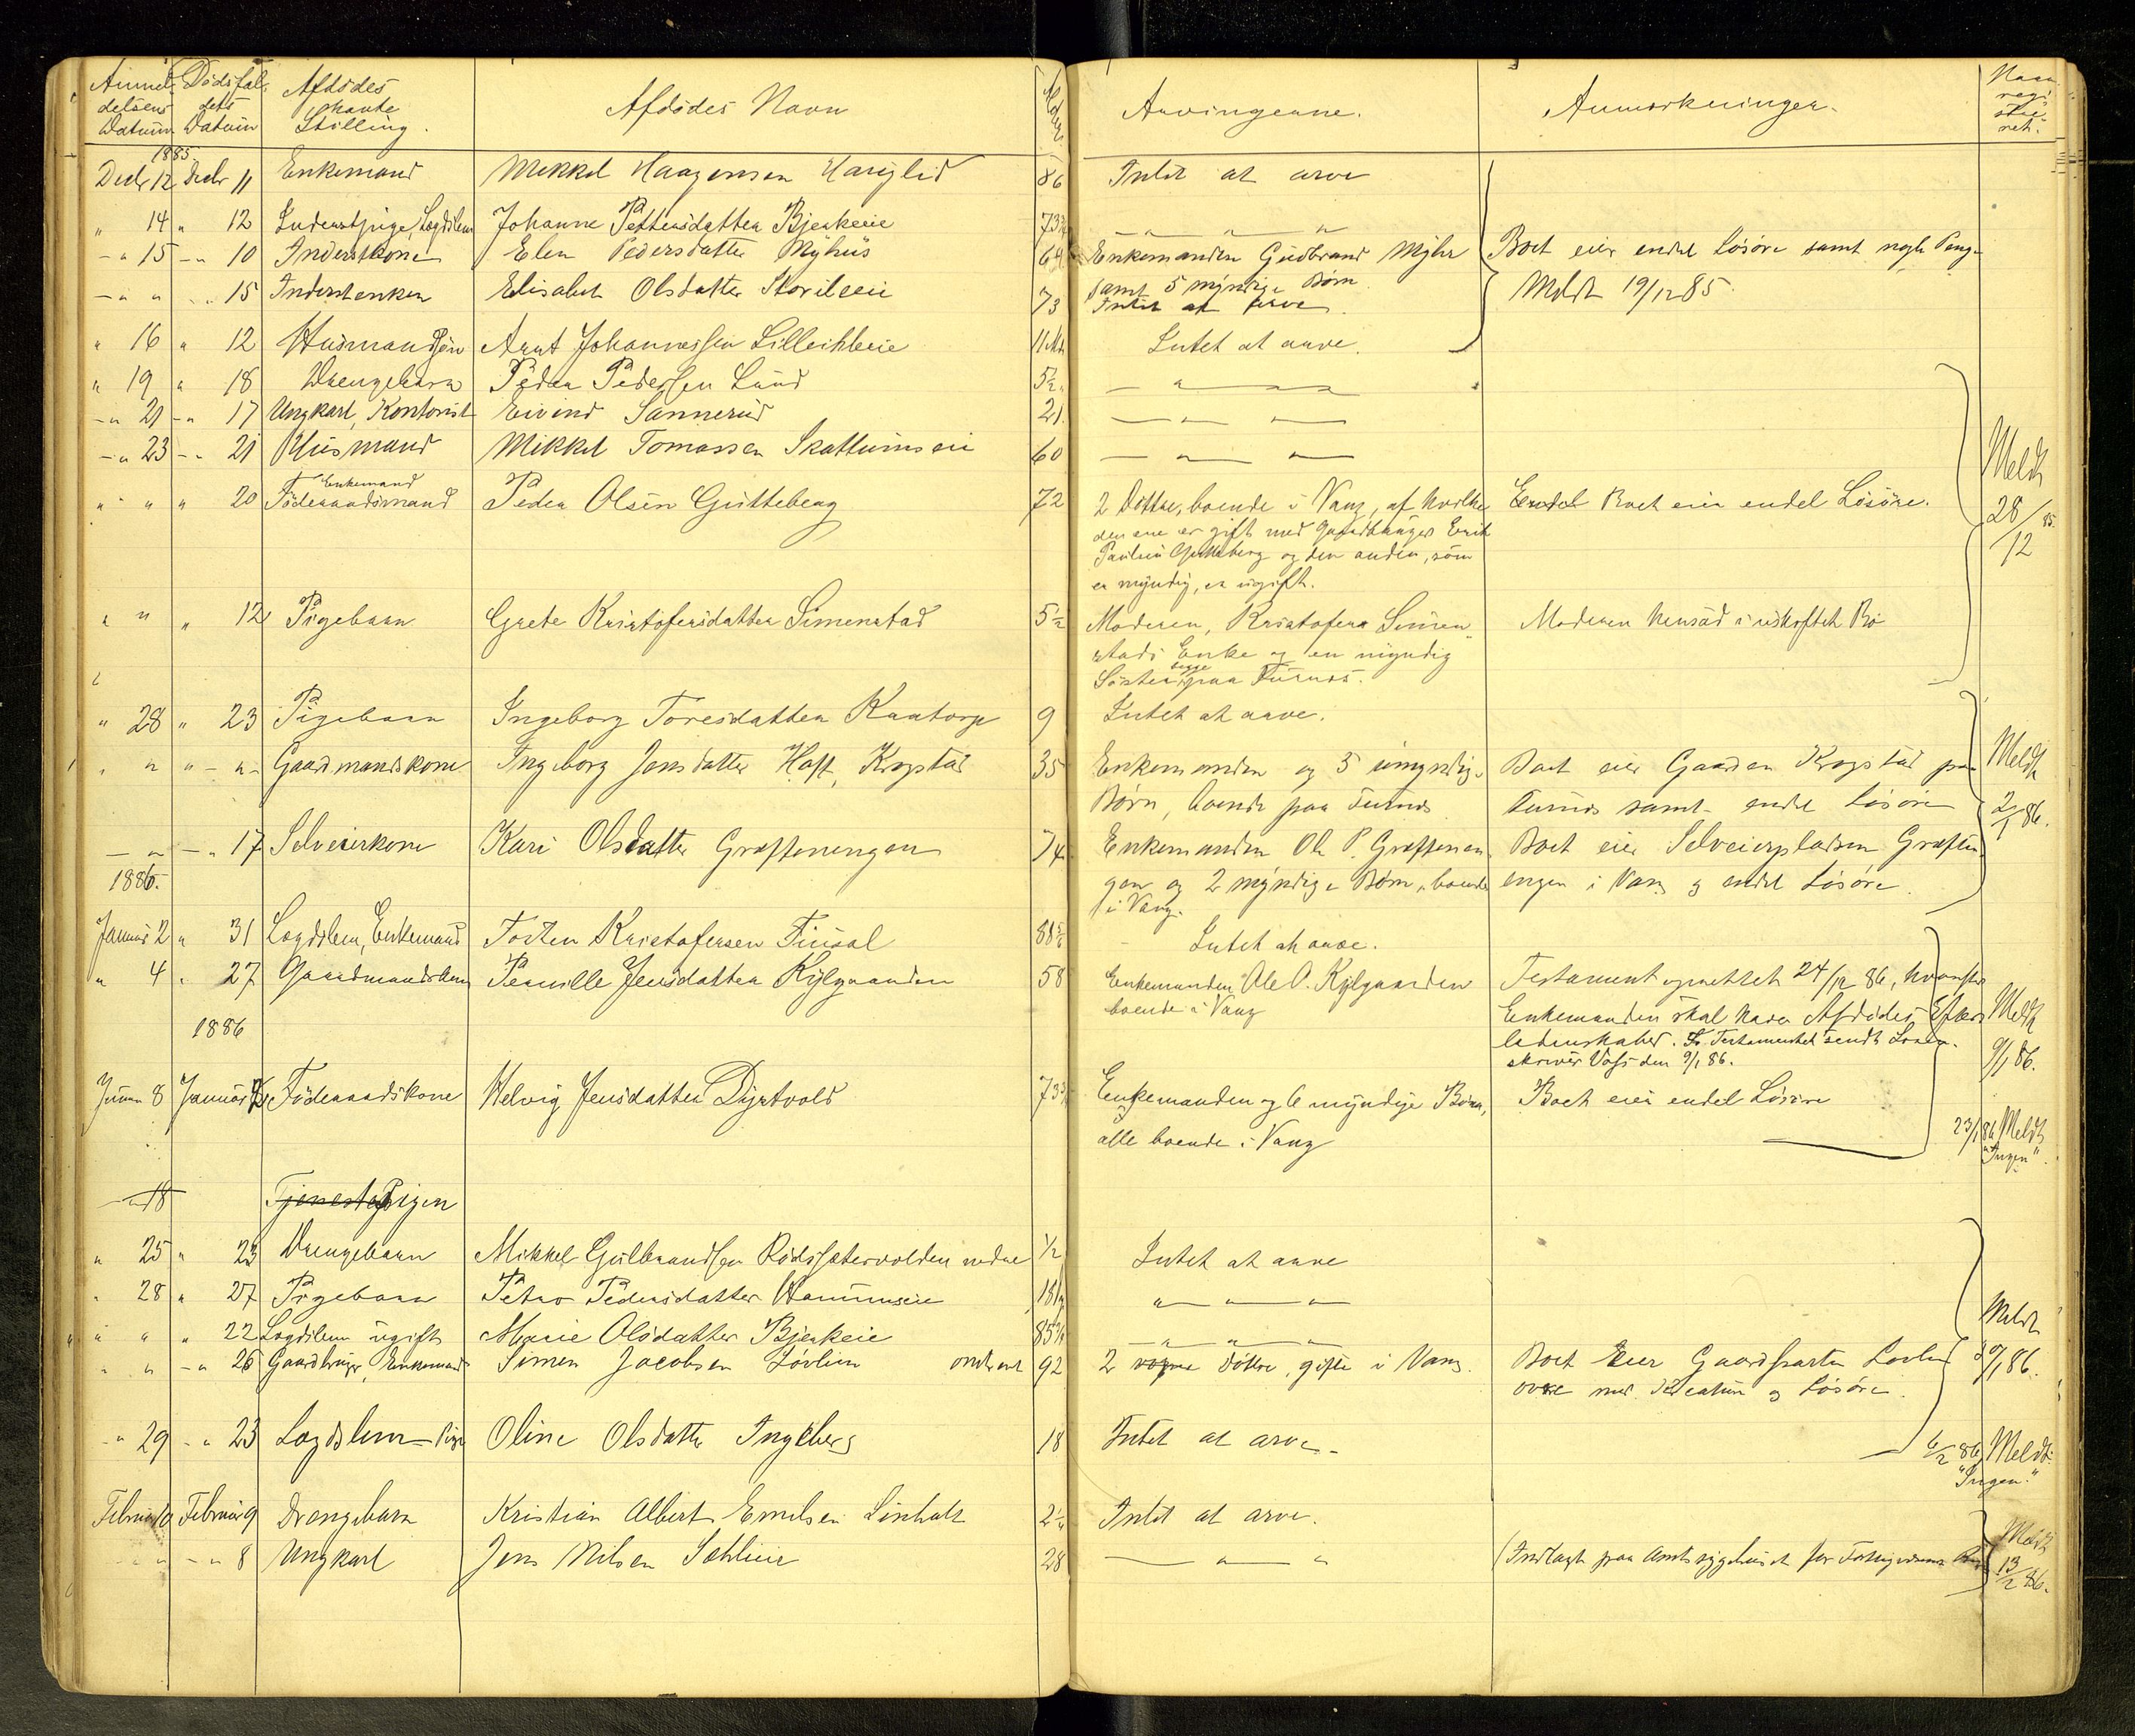 Anmel- Dødsfal- Afdødes Afdødes Navn Alder Arvingerne. Anmærkninger. Naar
delsens dets Stilling. regi-
Datum Datum stre-
ret.
1885.
Decbr 12 Decbr 11 Enkemand Mikkel Haagensen 86 Intet at arve
" 14 " 12 Inderstpige, Lægdslem Johanne Pettersdatter Bjerkeeie 73 " " "
" 15 " 10 Inderstkone Elen Pedersdatter Myhus 64 Enkemanden Gudbrand Myhr Boet eier endel Løsøre samt nogle Penge
samt 5 myndige Børn
" " " 15 Inderstenken Elisabet Olsdatter 73 Intet at arve. Meldt 19/12 85.
" 16 " 12 Husmandssøn Arnt Johannessen 11 Intet at arve.
" 19 " 18 Drengebarn Peder Pedersen Lund 5½ "
" 21 " 17 Ungkarl, Kontorist Eivind Sannerud 21 "
" 23 " 21 Husmand Mikkel Tomassen Skattumseie 60 " "
Enkemand Meldt
" " " 20 Föderaadsmand Peder Olsen Gutteberg 72 2 Døttre, boende i Vang, af hvilke Boet eier endel Løsöre. 28/12 85.
den ene er gift med Gaardbruger Erik
Paulsen Gutteberg og den anden, som
er myndig, er ugift.
" " " 12 Pigebarn Grete Kristofersdatter Simenstad 5½ Moderen, Kristofer Simen- Moderen hensad i uskiftet Bo
stads Enke og en myndig
Söster, begge paa Furnes.
" 28 " 23 Pigebarn Ingeborg Toresdatter Kaatorp 9 Intet at arve.
" " " " Gaardmandskone Ingeborg Jensdatter Haft, Krogstad 35 Enkemanden og 3 umyndige Boet eier Gaarden Krogstad paa Meldt
Børn, boende paa Furnes Furnes samt endel Løsøre 2/1 86.
" " 17 Selveierkone Kari Olsdatter Græftenengen 74 Enkemanden Ole P. Græftenen- Boet eier Selveierpladsen Græften-
1886. gen og 2 myndige Børn, boende engen i Vang og endel Løsøre.
i Vang.
Januar 2 " 31 Lægdslem, Enkemand Kristofersen Intet at arve.
" 4 " 27 Pernille Jensdatter Kylgaarden 58 Enkemanden Ole O. Kylgaarden Testament oprettet 24/12 86, hvorefter
boende i Vang Enkemanden skal have Afdødes Efter- Meldt
1886 ladenskaber. Testamentet sendt Soren- 9/1 86.
skriver Voss den 9/1 86.
Januar 8 Januar Föderaadskone Helvig Jensdatter Dyrtvold 73 Enkemanden og 6 myndige Börn, Boet eier endel Løsøre
alle boende i Vang 23/1 86 Meldt
"Ingen".
" 18 Tjenestepigen
" 25 " 23 Drengebarn Mikkel Gulbrandsen Rødssætervolden nedre ½ Intet at arve
" 28 " 27 Pigebarn Petra Pedersdatter " " "
" " " 22 Lægdslem ugift Marie Olsdatter Bjerkeie 85 " " " Meldt
" " " 26 Gaardbruger, Enkemand Simen Jacobsen Løvlien 92 2 Døttre, gifte i Vang. Boet Eier Gaardparten 30/1 86.
med Kreatur og Løsøre.
" 29 " 23 Lægdslem Pige Oline Olsdatter Ingeberg 18 Intet at arve
6/2 86 Meldt
"Ingen."
Februar 10 Februar 9 Drengebarn Kristian Albert Emilsen 2¼ Intet at arve.
" " " 8 Ungkarl Jens Nilsen 28 " " (Indlagt paa Amtssygehuset for Meldt
13/2 86.